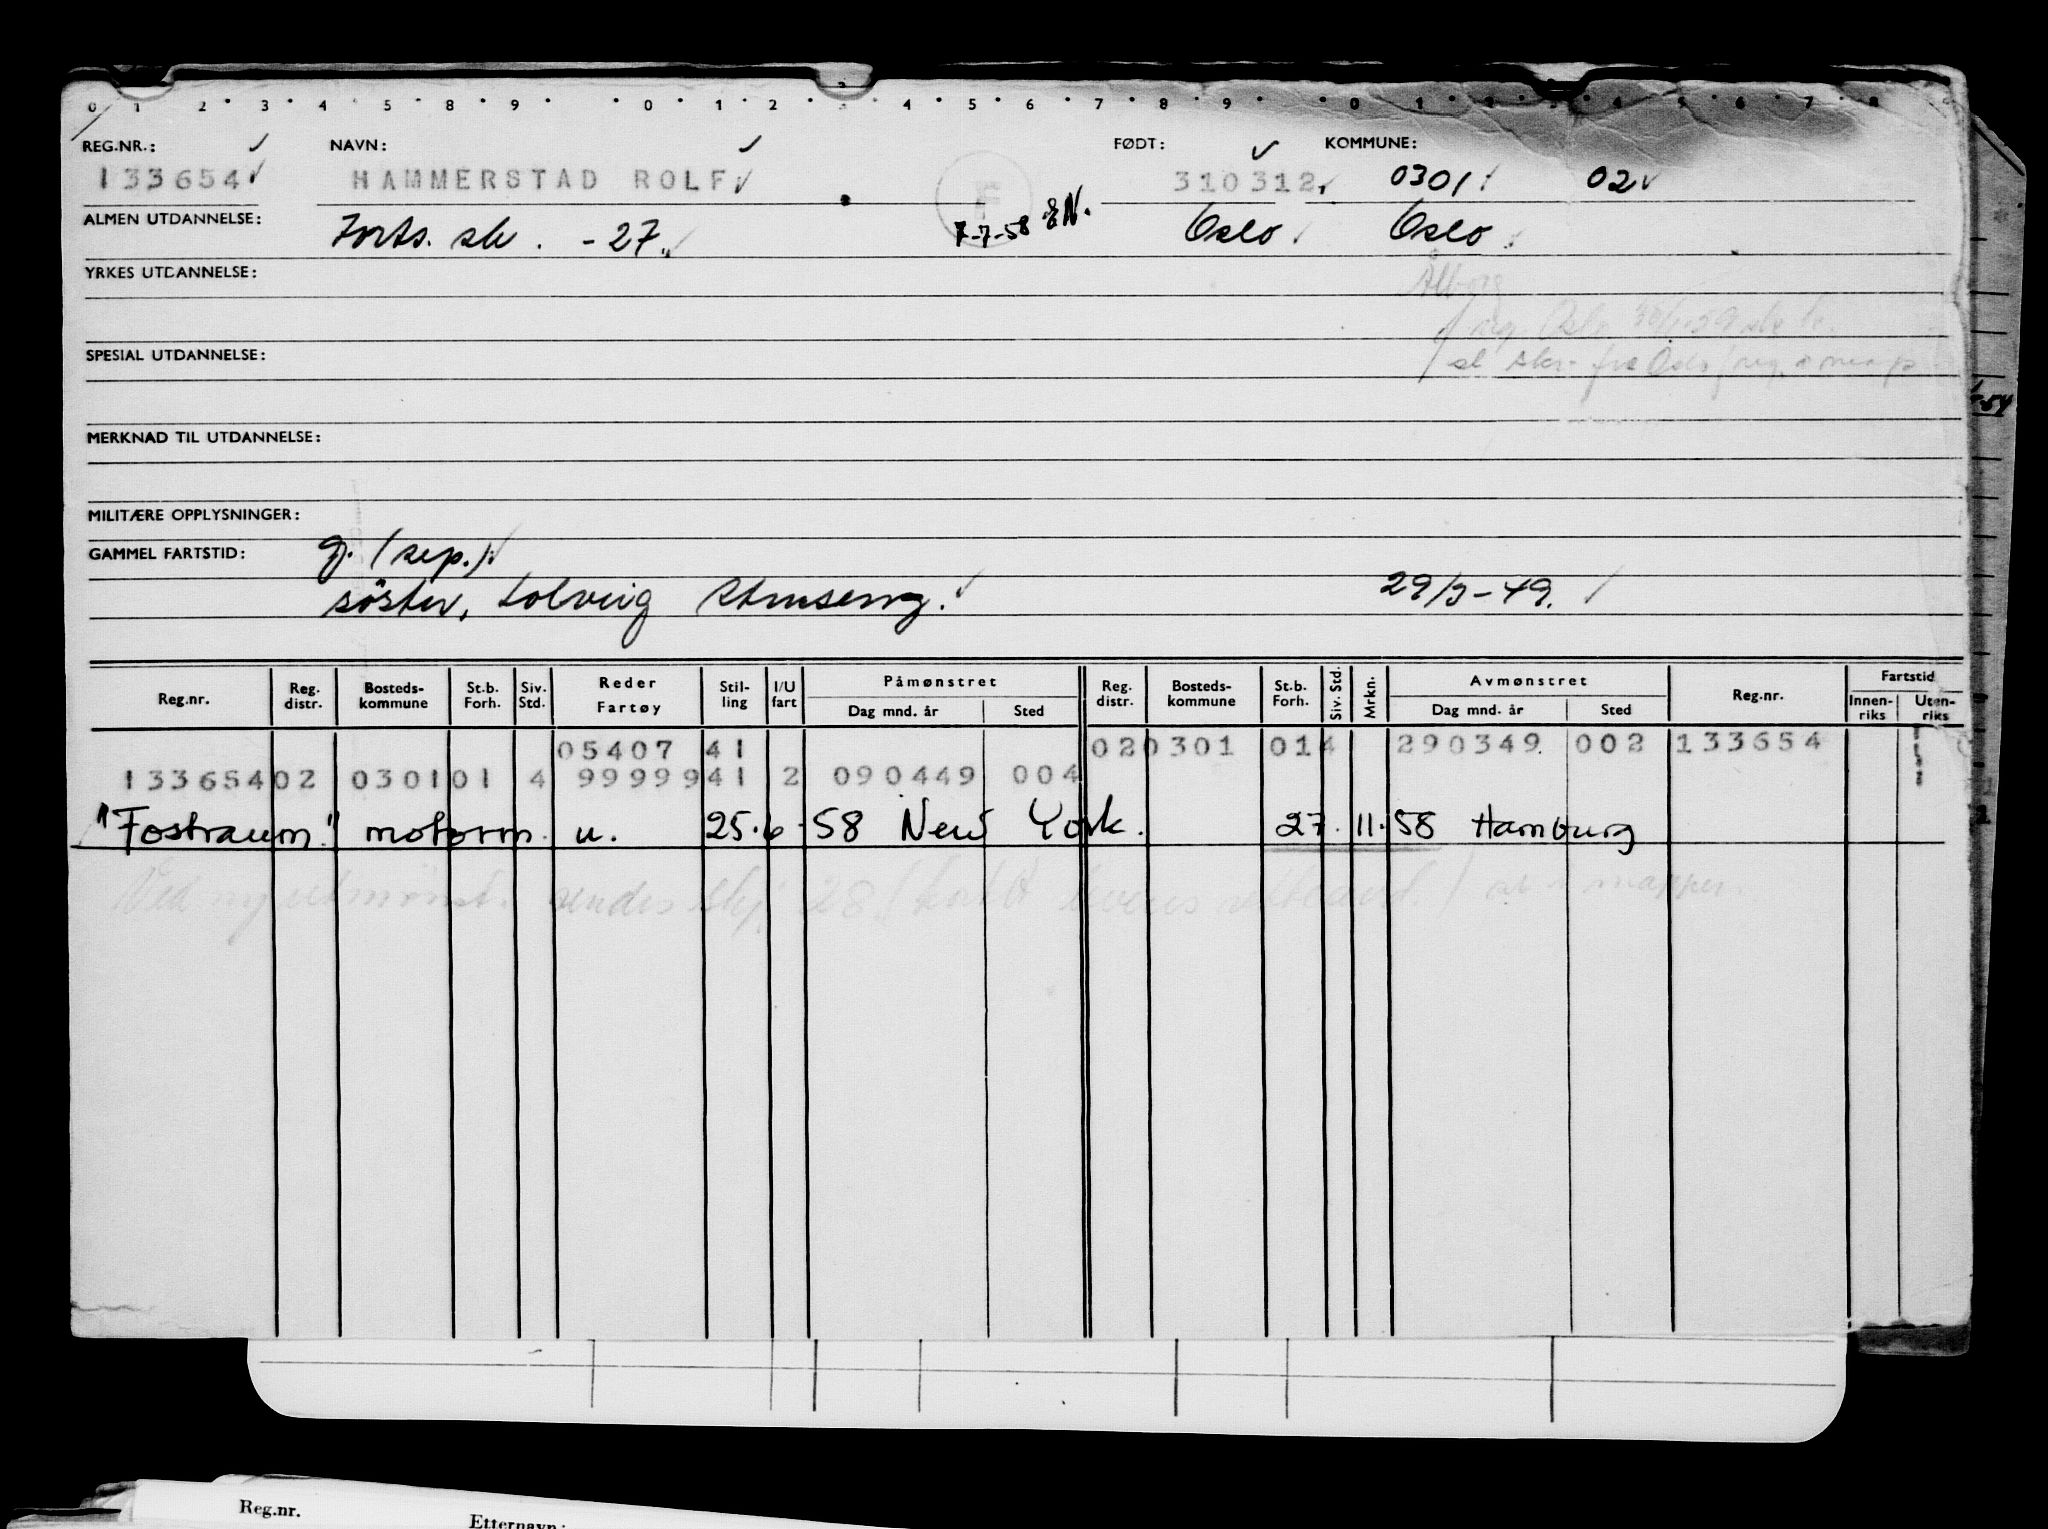 0 1 2 3 4 5 8 9 0 1 2 3 4 5 6 7 8 9 0 1 2 3 4 5 6 7 8
REG.NR.: NAVN: FØDT: KOMMUNE:
133654 HAMMERSTAD ROLF F 310312 0301 02
ALMEN UTDANNELSE: Forts. sk. -27. 7-7-58 EN. Oslo Oslo
YRKES UTDANNELSE: Ålborg
SPESIAL UTDANNELSE:
-54
MERKNAD TIL UTDANNELSE:
MILITÆRE OPPLYSNINGER:
GAMMEL FARTSTID: g. (sep.).
søster, Solveig 29/3-49.
Reg.nr. Reg. distr. Bosteds- kommune St.b. Forh. Siv. Std. Reder Fartøy Stil- ling I/U fart Påmønstret Dag mnd. år Sted Reg. distr. Bosteds- kommune St.b. Forh. Siv. Std. Mrkn. Avmønstret Dag mnd. år Sted Reg.nr. Fartstid Innen- riks Uten- riks
05407 41 020301 014 290349 002 133654
13365402 030101 4 9999941 2 090449 004
"Fostraum" motorm. u. 25.6.58 New York. 27.11.58 Hamburg
Ved ny utmønst. sendes skj. 28
Reg.nr.
Etternavn: